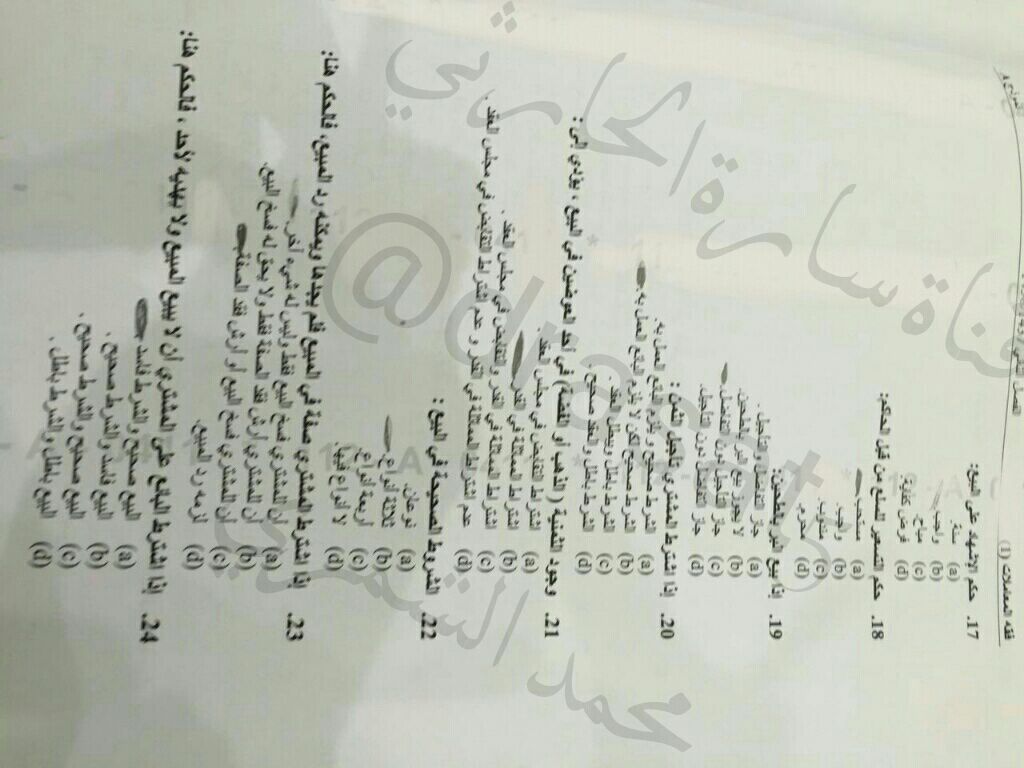 فقه المعاملات (1)
17. حكم الإشهاد على البيع:
(a) سنة.
(b) واجب.
(c) مباح.
(d) فرض كفاية.
18. حكم التسعير للسلع من قبل الحاكم:
(a) مستحب.
(b) واجب.
(c) مندوب.
(d) محرم.
19. إذا بيع البر بالطحين:
(a) جاز التفاضل والتأجيل.
(b) لا يجوز بيع البر بالطحين.
(c) جاز التأجيل بدون التفاضل.
(d) جاز التفاضل دون التأجيل.
20. إذا اشترط المشتري تأجيل الثمن:
(a) الشرط صحيح و يلزم البائع العمل به.
(b) الشرط صحيح لكن لا يلزم البائع العمل به.
(c) الشرط باطل ويبطل العقد.
(d) الشرط باطل والعقد صحيح.
21. وجود الثمنية (الذهب أو الفضة) في أحد العوضين في البيع، يؤدي إلى:
(a) اشتراط التقابض في مجلس العقد.
(b) اشتراط المماثلة في القدر.
(c) اشتراط المماثلة في القدر والتقابض في مجلس العقد.
(d) عدم اشتراط المماثلة في القدر و عدم اشتراط التقابض في مجلس العقد.
22. الشروط الصحيحة في البيع:
(a) نوعان.
(b) ثلاثة أنواع.
(c) أربعة أنواع.
(d) لا أنواع فيها.
23. إذا اشترط المشتري صفة في المبيع فلم يجدها ويمكنه رد المبيع، فالحكم هنا:
(a) أن للمشتري فسخ البيع فقط وليس له شيء آخر.
(b) أن للمشتري أرش فقد الصفة فقط ولا يحق له فسخ البيع.
(c) أن للمشتري فسخ البيع أو أرش فقد الصفة.
(d) لزمه رد المبيع.
24. إذا اشترط البائع على المشتري أن لا يبيع المبيع ولا يهديه لأحد، فالحكم هنا:
(a) البيع صحيح والشرط فاسد.
(b) البيع فاسد والشرط صحيح.
(c) البيع صحيح والشرط صحيح.
(d) البيع باطل والشرط باطل.
قناة سارة الحارثي
محمد الشمري